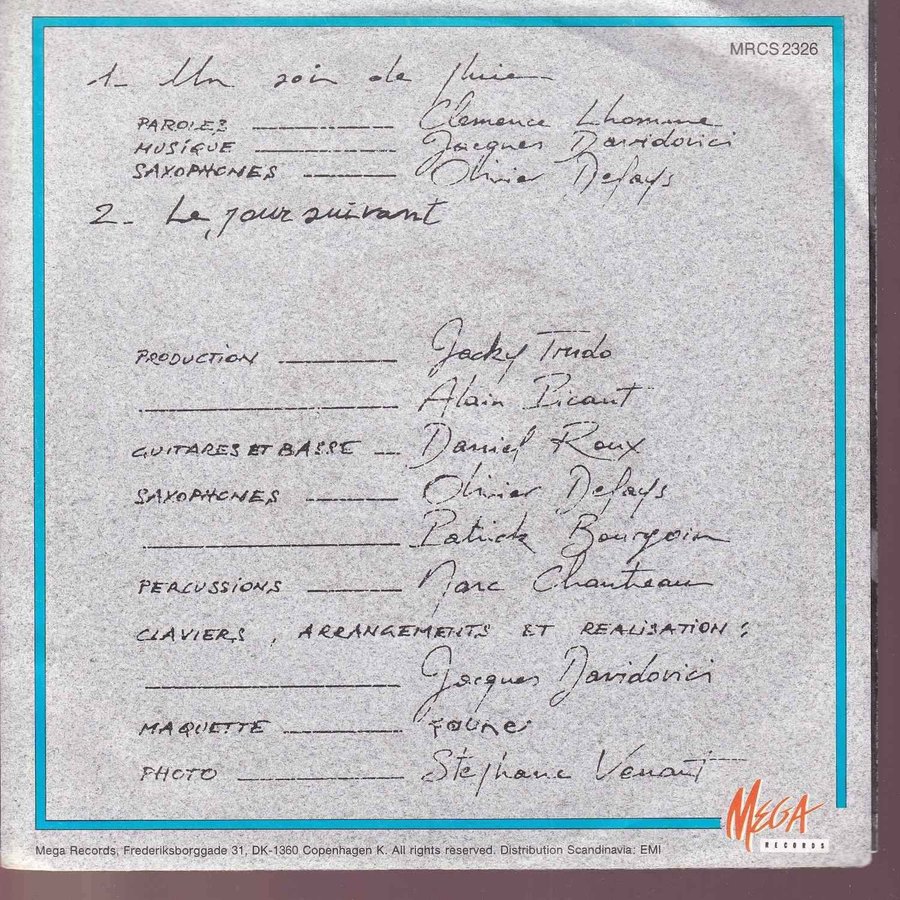 MRCS 2326
1_ Un soir de pluie
PAROLES Clemence Lhomme
MUSIQUE Jacques Davidovici
SAXOPHONES Olivier Defays
2_ Le jour suivant
PRODUCTION Jacky Trudo
Alain Picaut
GUITARES ET BASSE Daniel Roux
SAXOPHONES Olivier Defays
Patrick Bourgoin
PERCUSSIONS Marc Chantreau
CLAVIERS, ARRANGEMENTS ET REALISATION :
Jacques Davidovici
MAQUETTE
PHOTO Stéphane Venant
MEGA
RECORDS
Mega Records, Frederiksborggade 31, DK-1360 Copenhagen K. All rights reserved. Distribution Scandinavia: EMI